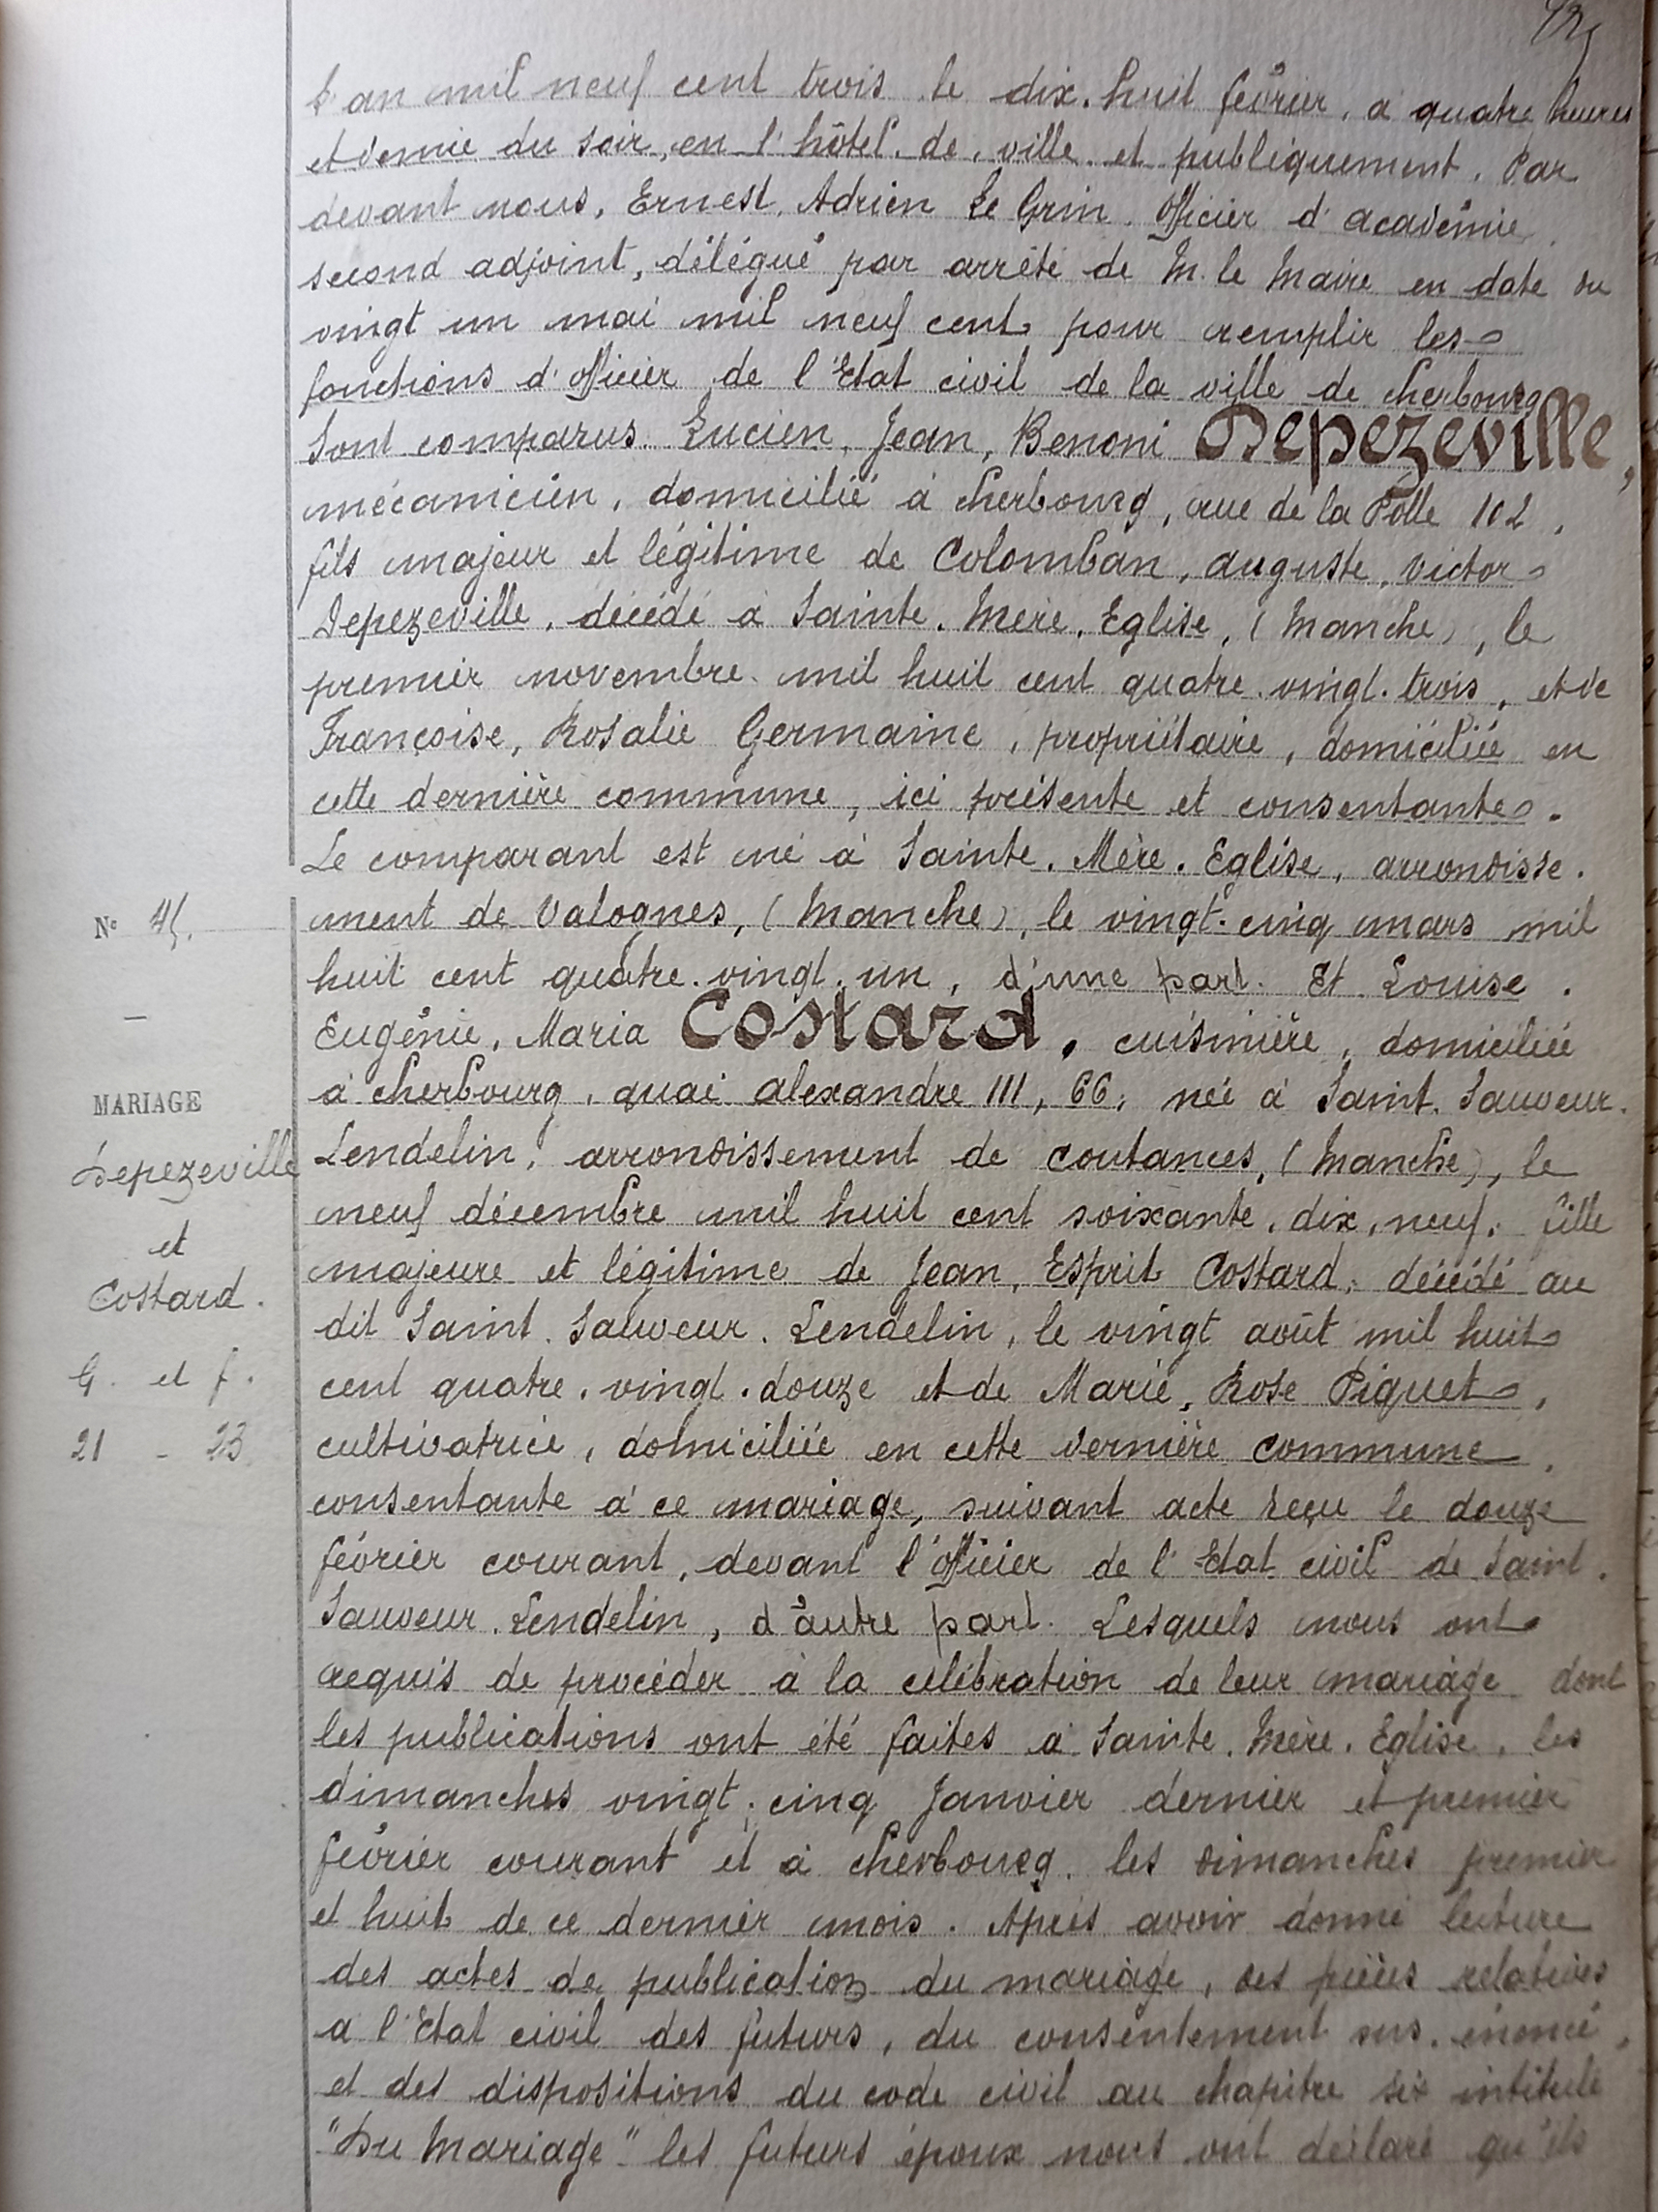 L'an mil neuf cent trois le dix. huit février, à quatre heures
et demie du soir, en l'hôtel. de. ville et publiquement. Par
devant nous, Ernest, Adrien Le Grin. Officier d'académie,
second adjoint, délégué par arrêté de M. le Maire en date du
vingt un mai mil neuf cent pour remplir les
fonctions d'Officier de l'Etat civil de la ville de Cherbourg
Sont comparus. Lucien, Jean, Benoni Depezeville,
mécanicien, domicilié à Cherbourg, rue de la Polle 102,
fils majeur et légitime de Colomban, Auguste, Victor
Depezeville, décédé à Sainte. Mère. Eglise, (Manche), le
premier novembre mil huit cent quatre. vingt. trois, et de
Françoise, Rosalie Germaine, propriétaire, domiciliée en
cette dernière commune, ici présente et consentante.
Le comparant est né à Sainte. Mère. Eglise, arrondisse.
N° 45.
ment de Valognes, (Manche), le vingt. cinq mars mil
huit cent quatre. vingt. un, d'une part. Et Louise.
Eugénie, Maria Costard, cuisinière, domiciliée
MARIAGE
à Cherbourg, quai Alexandre III, 66, née à Saint. Sauveur.
Depezeville
Lendelin, arrondissement de Coutances, (Manche), le
et
neuf décembre mil huit cent soixante. dix. neuf, fille
Costard.
majeure et légitime de Jean, Esprit Costard, décédé au
dit Saint. Sauveur. Lendelin, le vingt août mil huit
G. et f.
cent quatre. vingt. douze et de Marie, Rose Piquet,
21 - 23
cultivatrice, domiciliée en cette dernière commune,
consentante à ce mariage, suivant acte reçu le douze
février courant, devant l'Officier de l'Etat civil de Saint.
Sauveur. Lendelin, d'autre part. Lesquels nous ont
requis de procéder à la célébration de leur mariage dont
les publications ont été faites à Sainte. Mère. Eglise, les
dimanches vingt. cinq Janvier dernier et premier
février courant et à Cherbourg, les dimanches premier
et huit de ce dernier mois. Après avoir donné lecture
des actes de publication du mariage, des pièces relatives
à l'Etat civil des futurs, du consentement sus. énoncé,
et des dispositions du code civil au chapitre six intitulé
"Du Mariage" les futurs époux nous ont déclaré qu'ils